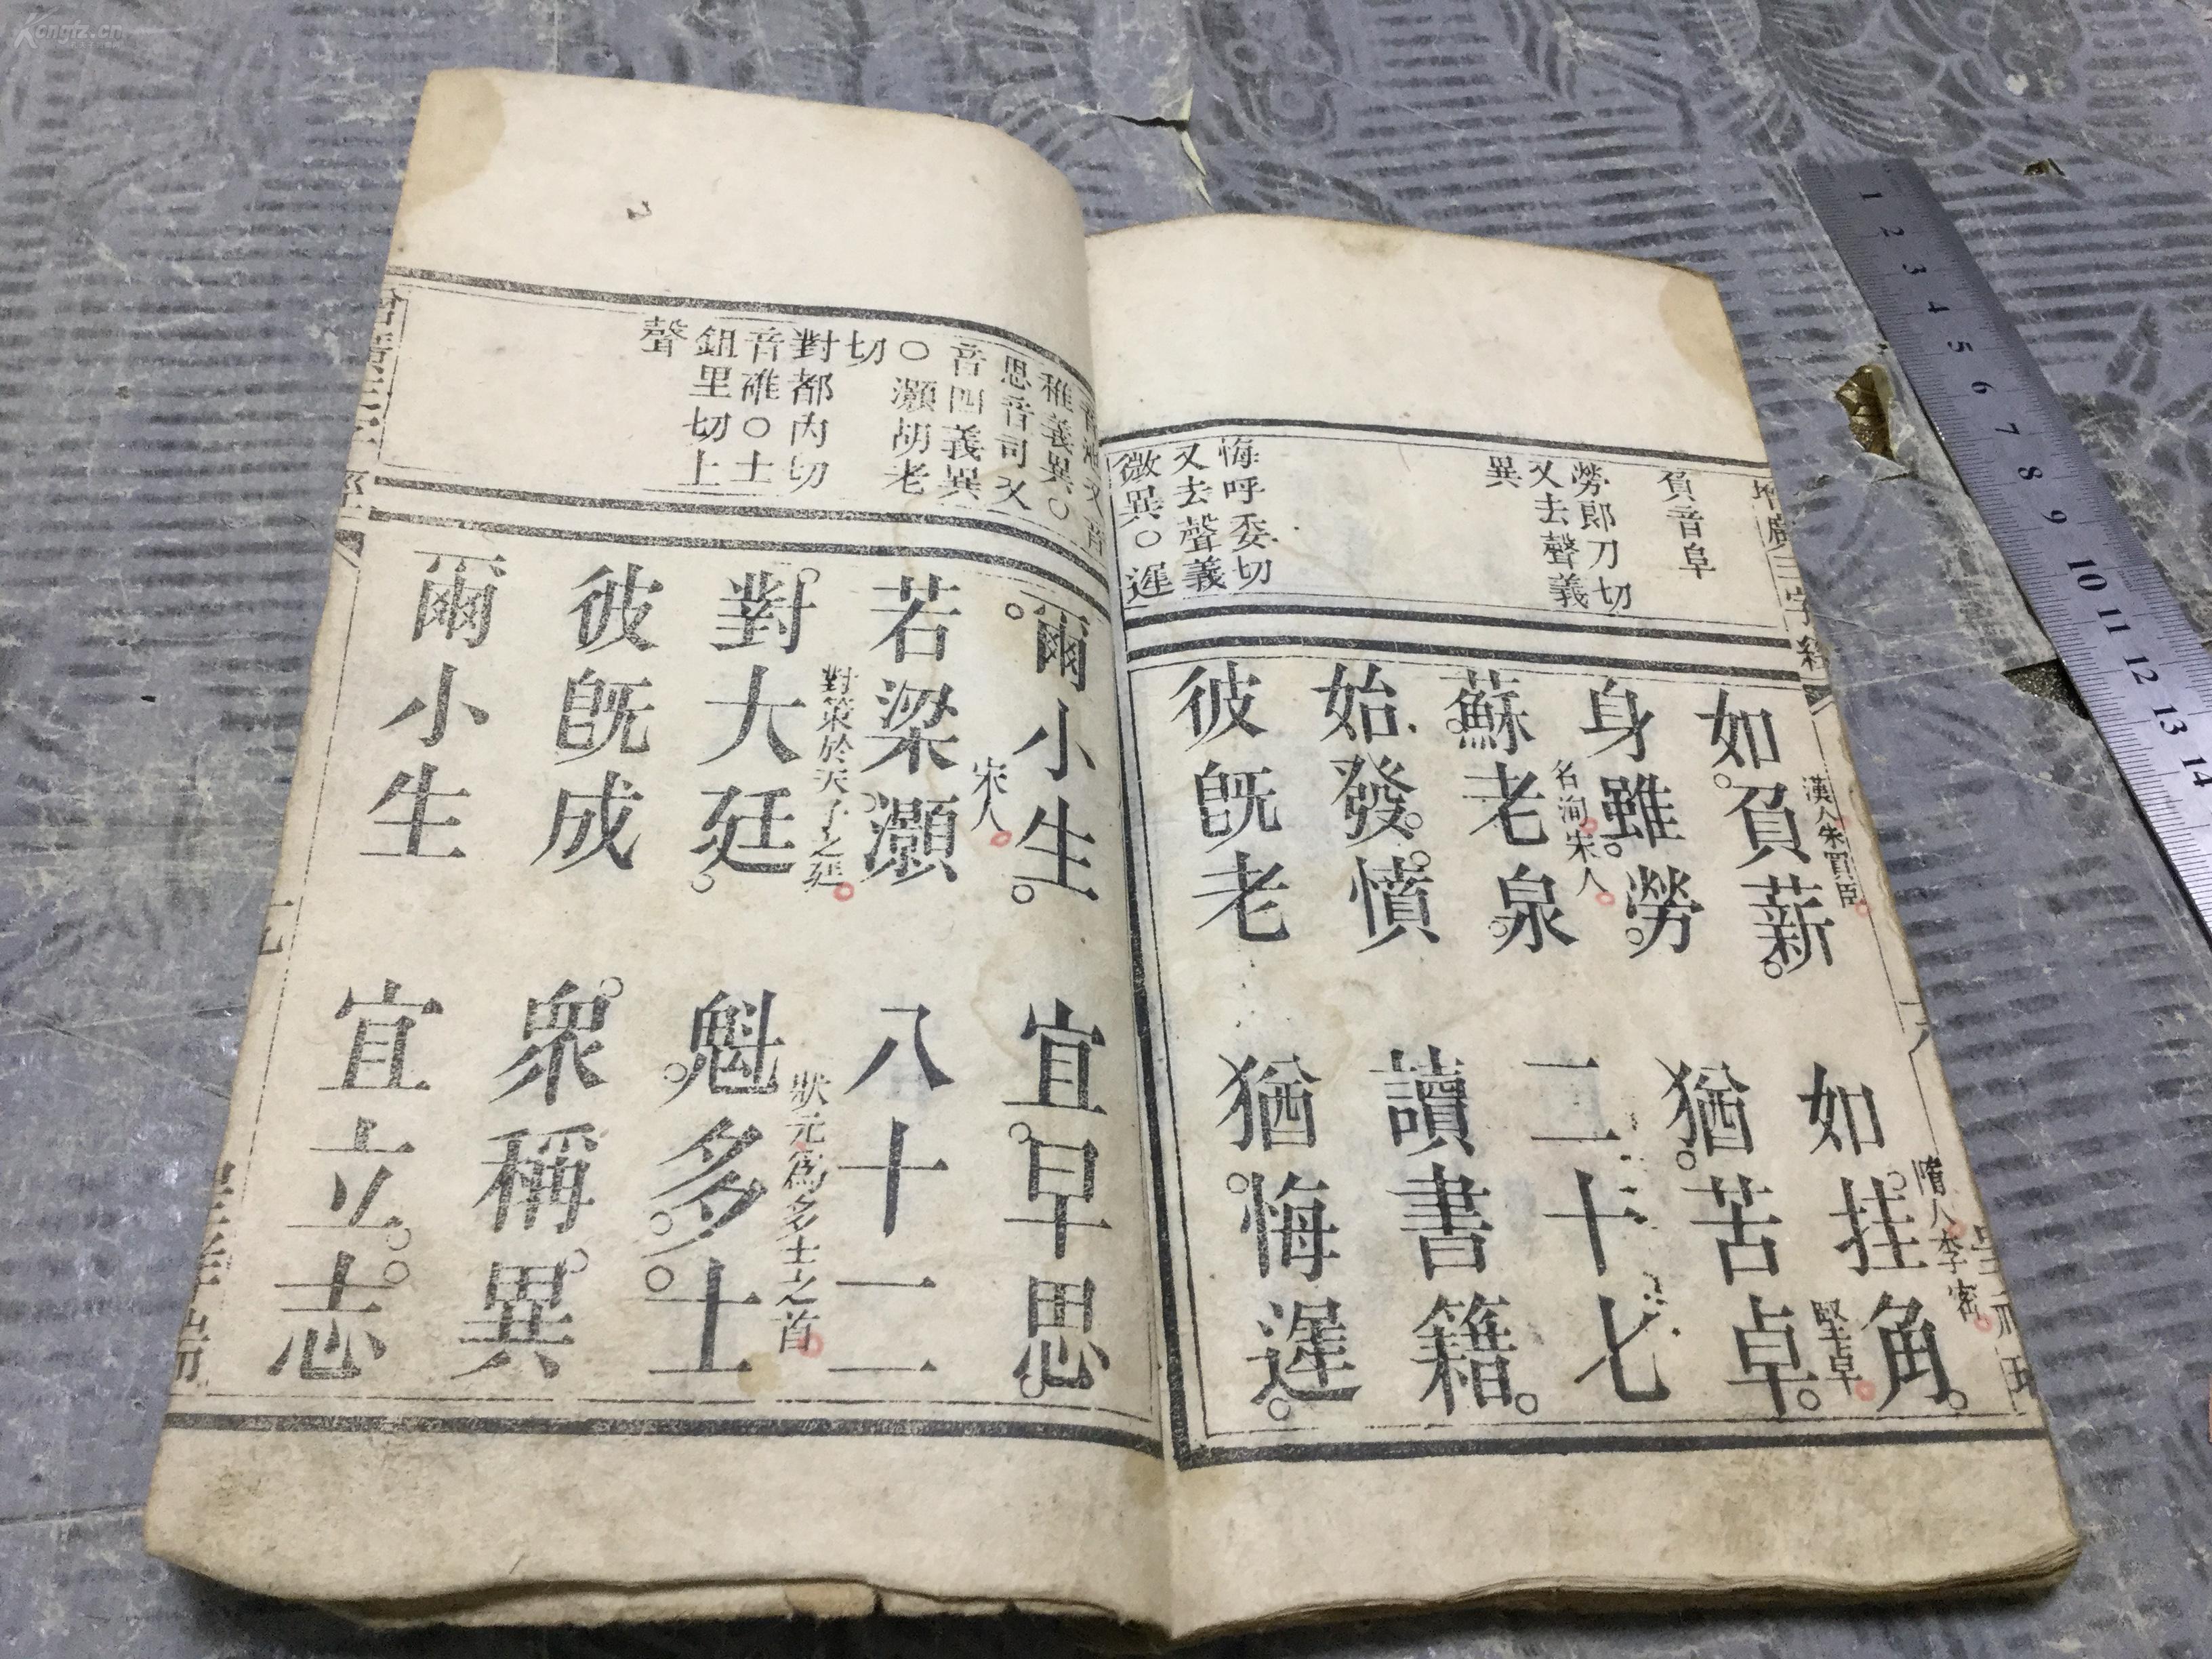 Kongfz.cn
增廣三字經
負音阜
勞郎刀切
又去聲義
異
悔呼委切
又去聲義
微異○遲
如負薪 如挂角
漢人朱買臣
隋人李密
身雖勞 猶苦卓
堅卓
蘇老泉 二十七
名洵宋人
始發憤 讀書籍
彼旣老 猶悔遲
稚義異○
思音司又
音四義異
○灝胡老
切
對都內切
音碓○士
鉏里切上
聲
爾小生 宜早思
若梁灝 八十二
宋人
對大廷 魁多士
對策於天子之廷
狀元爲多士之首
彼旣成 衆稱異
爾小生 宜立志